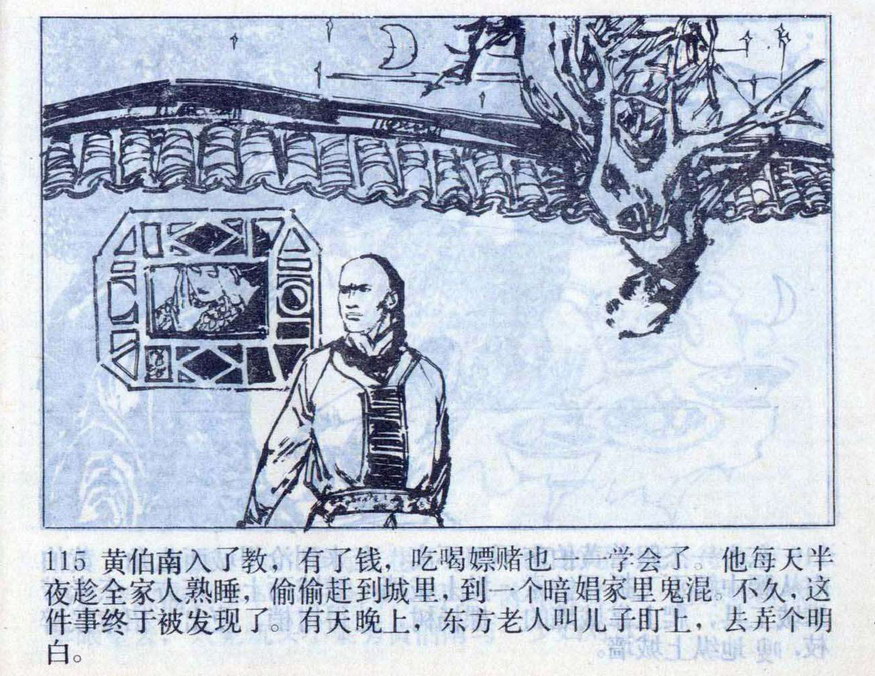 115 黄伯南入了教，有了钱，吃喝嫖赌也一一学会了。他每天半
夜趁全家人熟睡，偷偷赶到城里，到一个暗娼家里鬼混。不久，这
件事终于被发现了。有天晚上，东方老人叫儿子盯上，去弄个明
白。